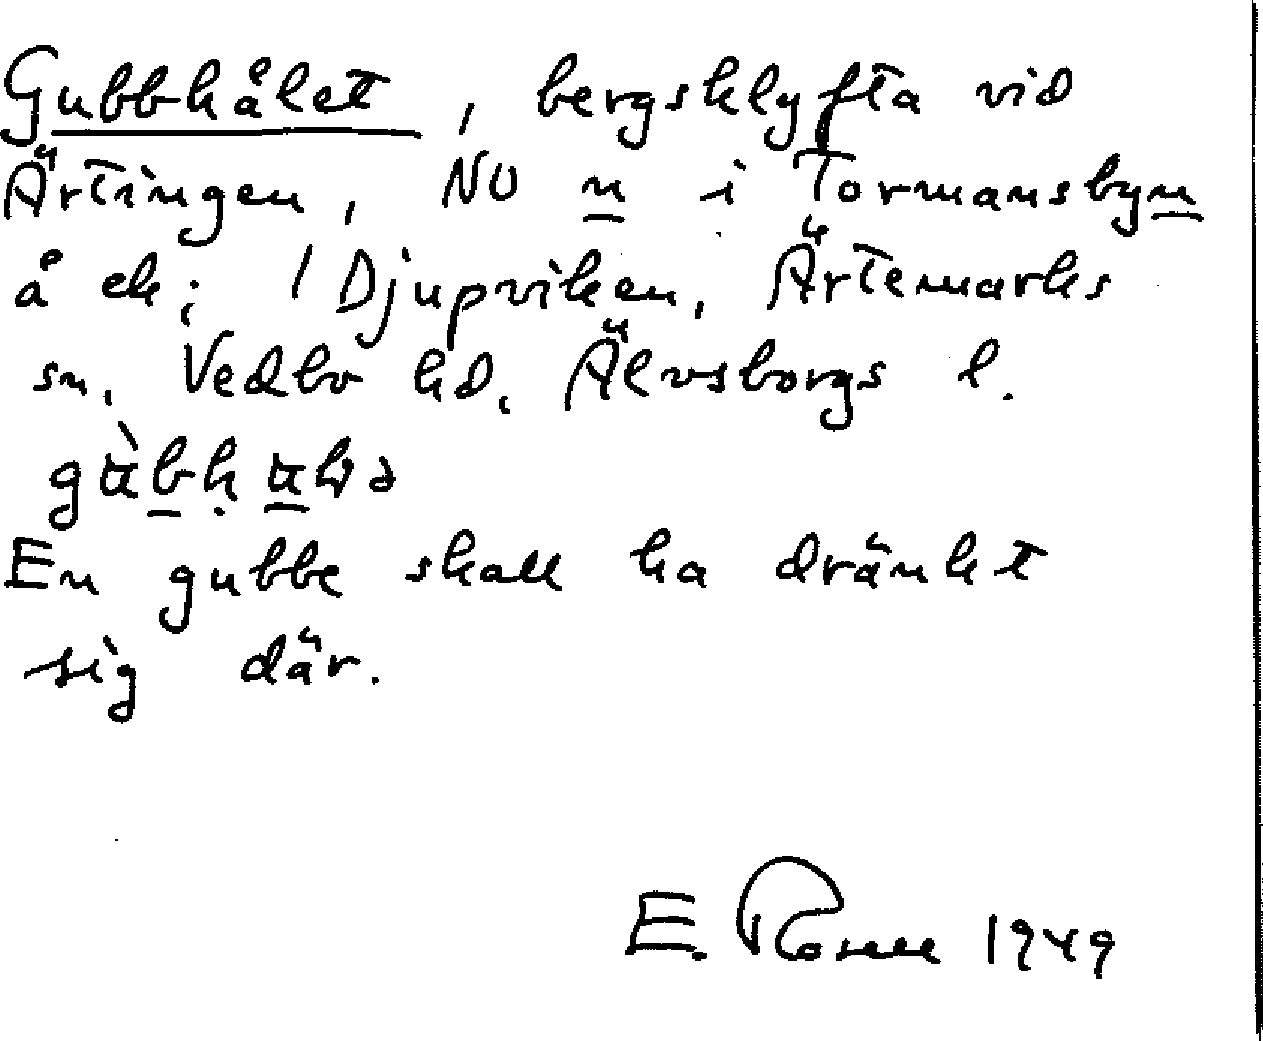 Gubbhålet, bergsklyfta vid
Ärtingen, NO n i Tormansbyn
å ek; 1 Djupviken, Ärtemarks
sn, Vedbo hd, Älvsborgs l.
En gubbe skall ha dränkt
sig där.
E. 1949